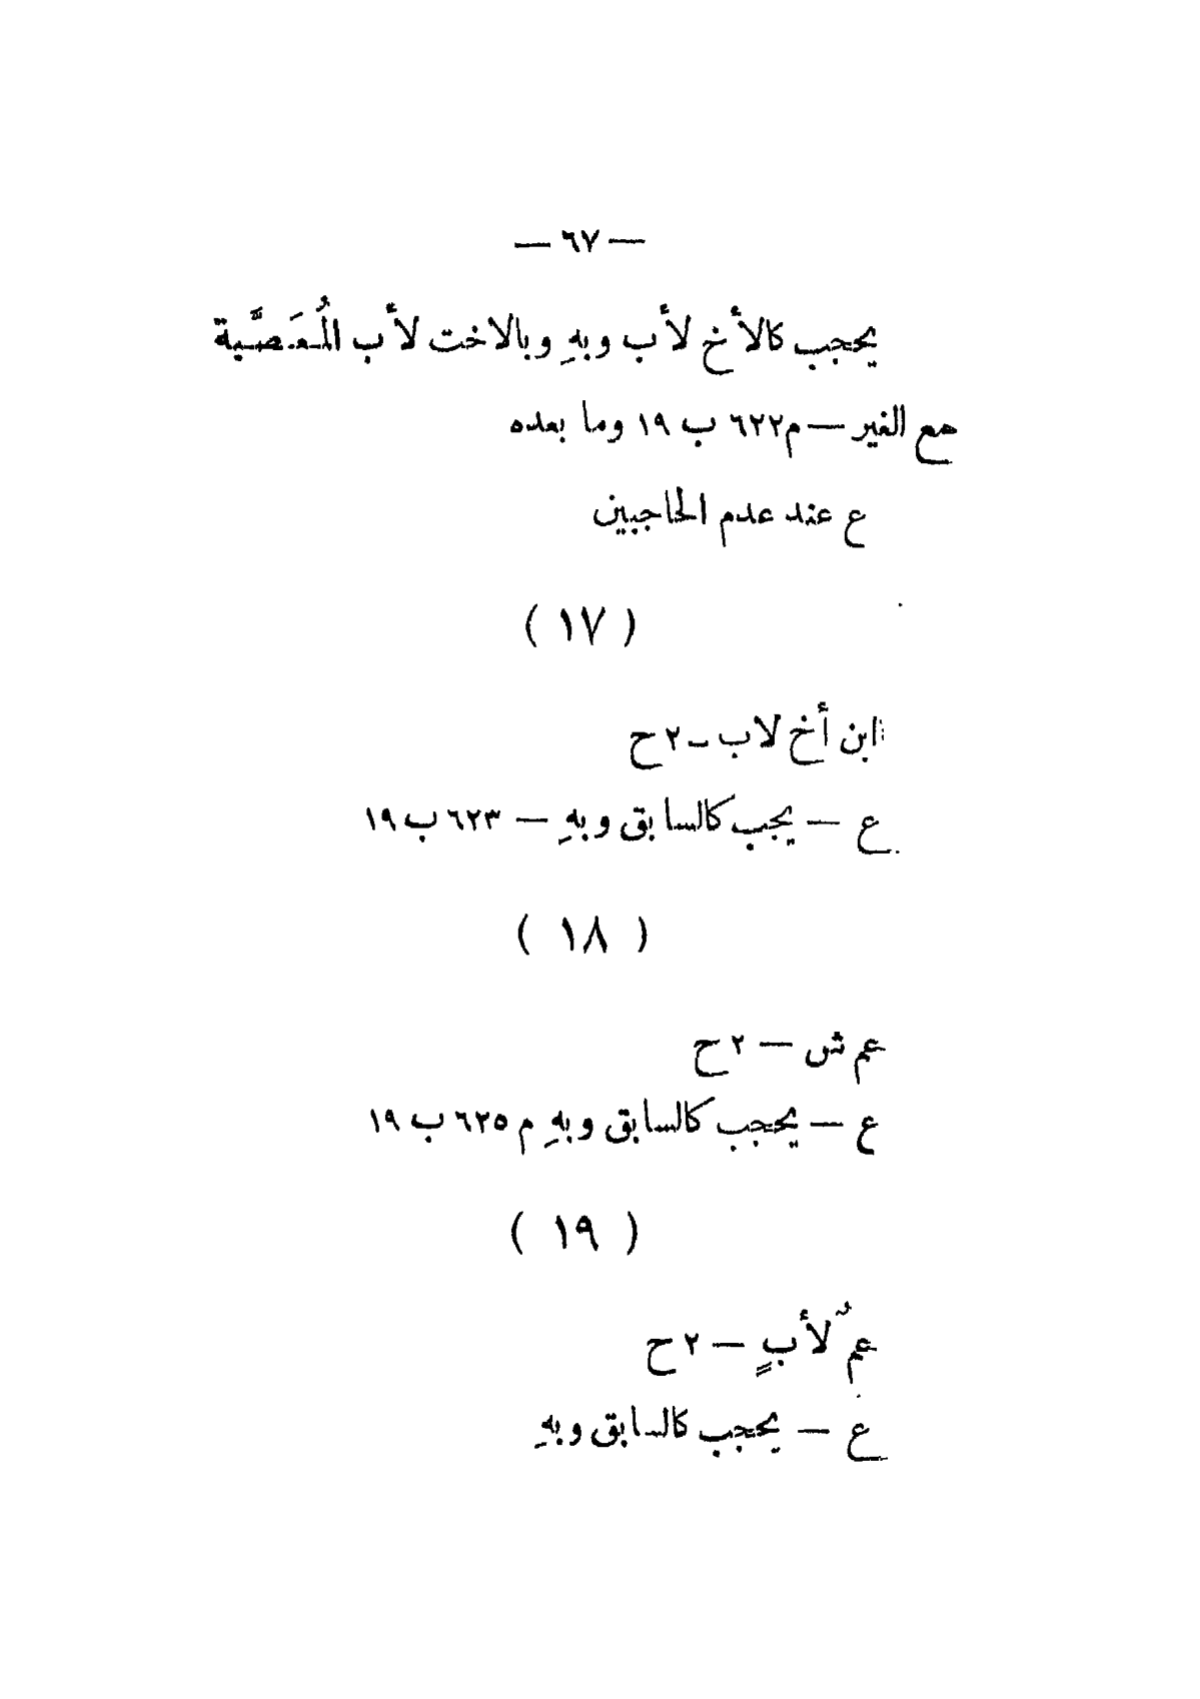 — ٦٧ —
يحجب كالأخ لأب وبهِ وبالاخت لأب المُعَصَّبة
مع الغير — م٦٢٢ ب ١٩ وما بعده
ع عند عدم الحاجبين
( ١٧ )
ابن أخ لاب ـ ٢ ح
ع — يجب كالسابق وبهِ — ٦٢٣ ب ١٩
( ١٨ )
عم ش — ٢ ح
ع — يحجب كالسابق وبهِ م ٦٢٥ ب ١٩
( ١٩ )
عمٌ لأبٍ — ٢ ح
ع — يحجب كالسابق وبهِ